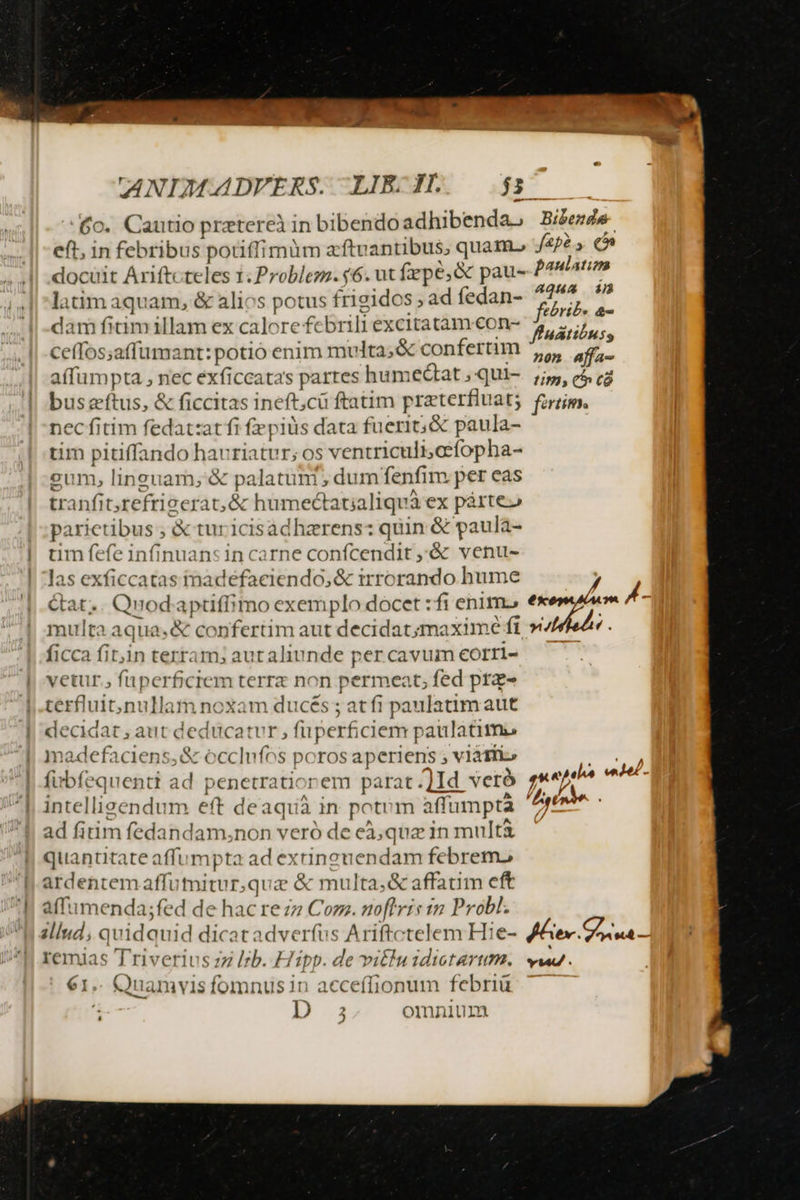 ANIMADVERS. LIB. II. 53
60. Cautio prætereà in bibendo adhibenda
eſt, in febribus potiſſimùm æſtuantibus, quam
docuit Ariſtoteles 1. Problem. 56. ut ſæpè, & pau-
latim aquam, & alios potus frigidos, ad ſedan-
dam ſitim illam ex calore febrili excitatam con-
ceſſos, aſſumant: potio enim multa, & confertim
aſſumpta, nec exſiccatas partes humectat, qui-
bus æſtus, & ſiccitas ineſt, cū ſtatim præterfluat;
nec ſitim ſedat: at ſi ſæpiùs data fuerit, & paula-
tim pitiſſando hauriatur; os ventriculi, œſopha-
gum, linguam, & palatum, dum ſenſim per eas
tranſit, refrigerat, & humectat; aliquà ex parte
parietibus, & turicis adhærens: quin & paula-
tim ſeſe inſinuans in carne conſcendit, & venu-
las exſiccatas madefaciendo, & irrorando hume
ctat. Quod aptiſſimo exemplo docet: ſi enim
multa aqua, & confertim aut decidat, maximè ſi
ſicca ſit, in terram; aut aliunde per cavum corri-
vetur, ſuperficiem terræ non permeat, ſed præ-
terfluit, nullam noxam ducēs; at ſi paulatim aut
decidat, aut deducatur, ſuperficiem paulatim
madefaciens, & occluſos poros aperiens, viam
ſubſequenti ad penetrationem parat.) Id verò
intelligendum eſt de aquà in potum aſſumptà
ad ſitim ſedandam, non verò de eà, quæ in multà
quantitate aſſumpta ad extinguendam febrem
ardentem aſſumitur, quæ & multa, & affatim eſt
aſſumenda; ſed de hac re in Com. noſtris in Probl.
illud, quidquid dicat adverſus Ariſtotelem Hie-
remias Triverius in lib. Hipp. de victu idiotarum.
61. Quamvis ſomnus in acceſſionum febriū
D 3 omnium
Bibenda
ſæpè, &
paulatim
aqua in
febrib. æ-
ſtuātibus,
non affa-
tim, & cō
fertim.